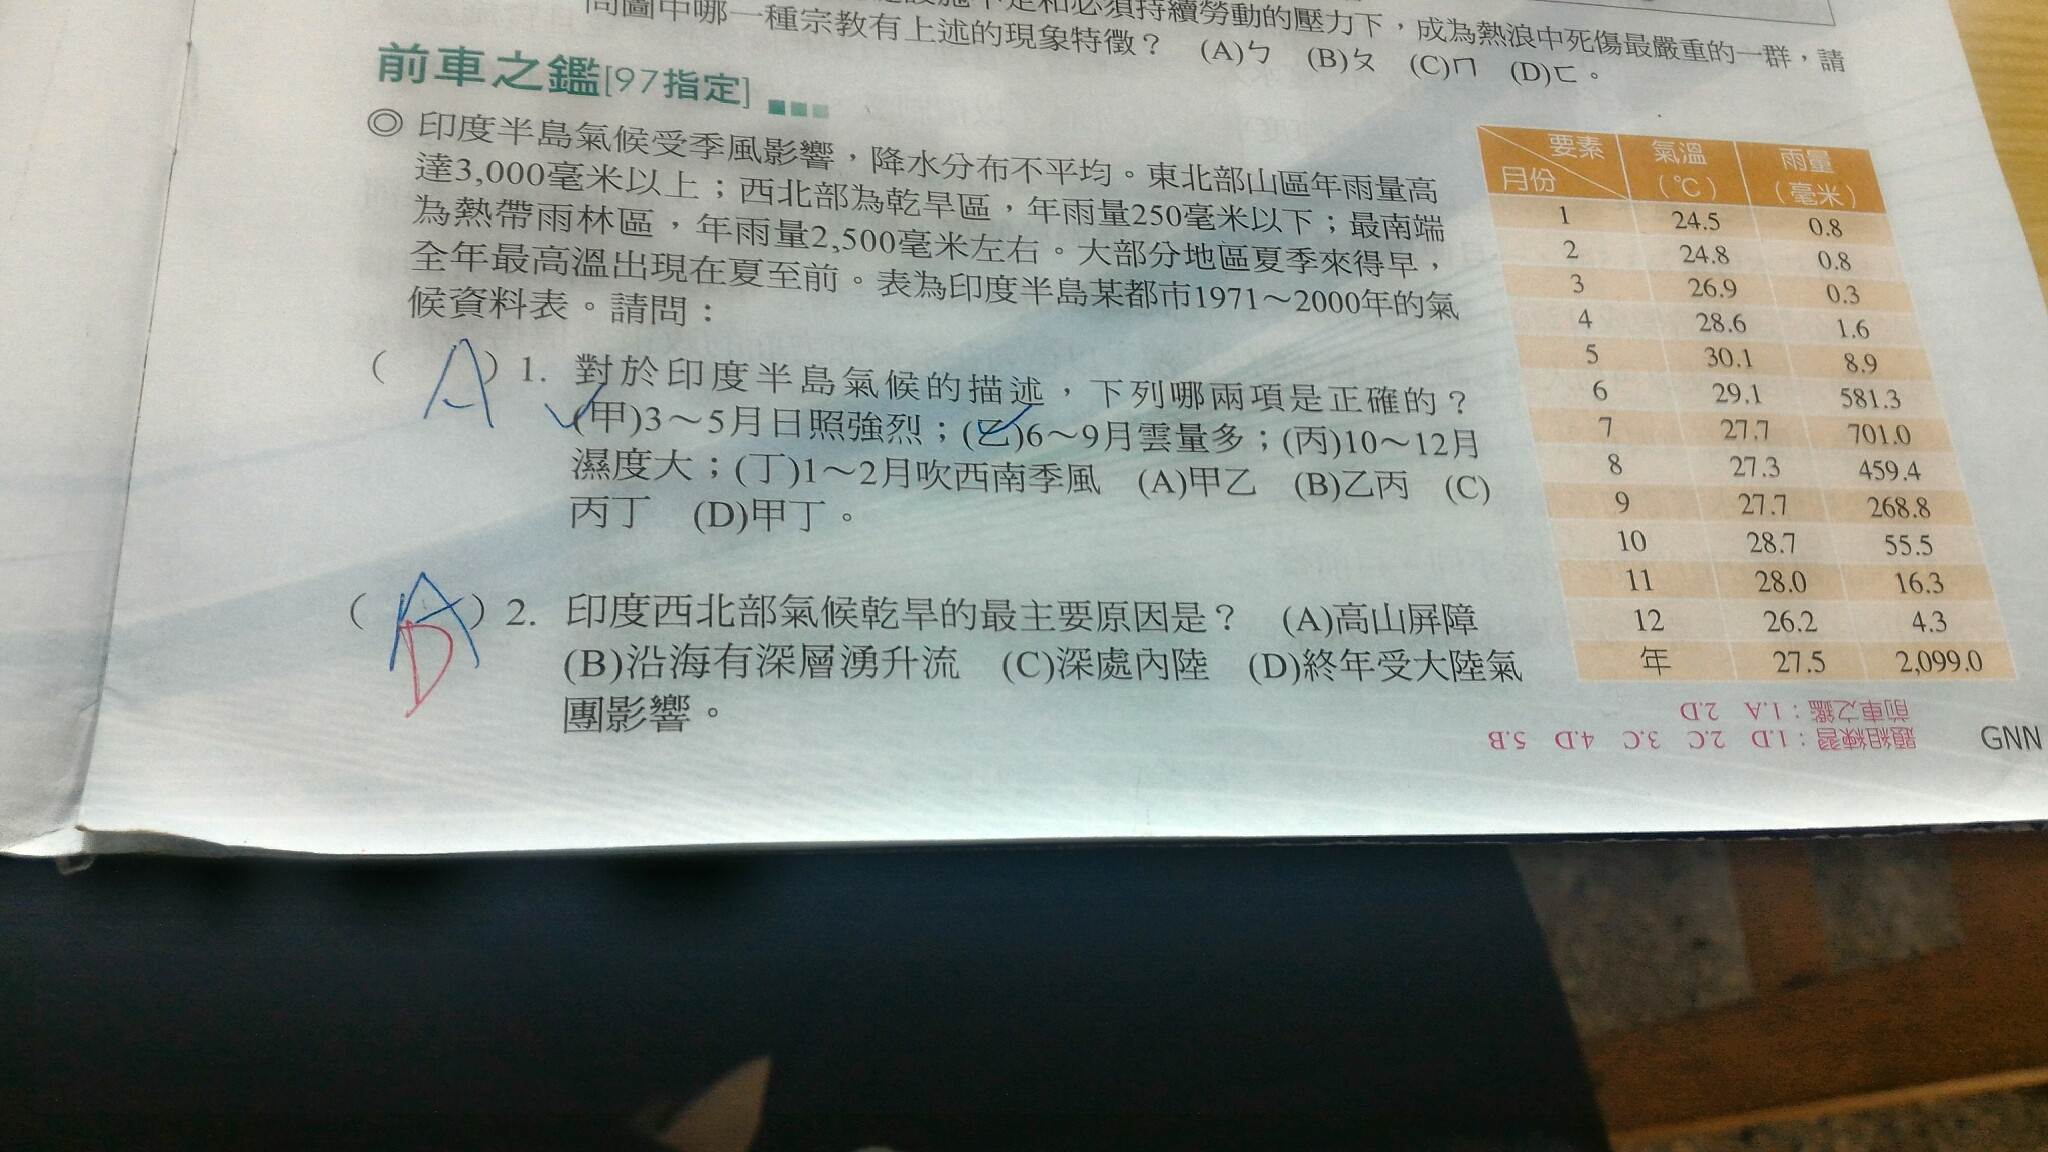 和必須持續勞動的壓力下，成為熱浪中死傷最嚴重的一群，請
問圖中哪一種宗教有上述的現象特徵？ (A)ㄅ (B)ㄆ (C)ㄇ (D)ㄈ。
前車之鑑[97指定]
◎ 印度半島氣候受季風影響，降水分布不平均。東北部山區年雨量高
達3,000毫米以上；西北部為乾旱區，年雨量250毫米以下；最南端
為熱帶雨林區，年雨量2,500毫米左右。大部分地區夏季來得早，
全年最高溫出現在夏至前。表為印度半島某都市1971～2000年的氣
候資料表。請問：
( A ) 1. 對於印度半島氣候的描述，下列哪兩項是正確的？
(甲)3～5月日照強烈；(乙)6～9月雲量多；(丙)10～12月
濕度大；(丁)1～2月吹西南季風 (A)甲乙 (B)乙丙 (C)
丙丁 (D)甲丁。
( A D ) 2. 印度西北部氣候乾旱的最主要原因是？ (A)高山屏障
(B)沿海有深層湧升流 (C)深處內陸 (D)終年受大陸氣
團影響。
要素 氣溫 雨量
月份 (℃) (毫米)
1 24.5 0.8
2 24.8 0.8
3 26.9 0.3
4 28.6 1.6
5 30.1 8.9
6 29.1 581.3
7 27.7 701.0
8 27.3 459.4
9 27.7 268.8
10 28.7 55.5
11 28.0 16.3
12 26.2 4.3
年 27.5 2,099.0
題組練習：1.D 2.C 3.C 4.D 5.B
前車之鑑：1.A 2.D
GNN